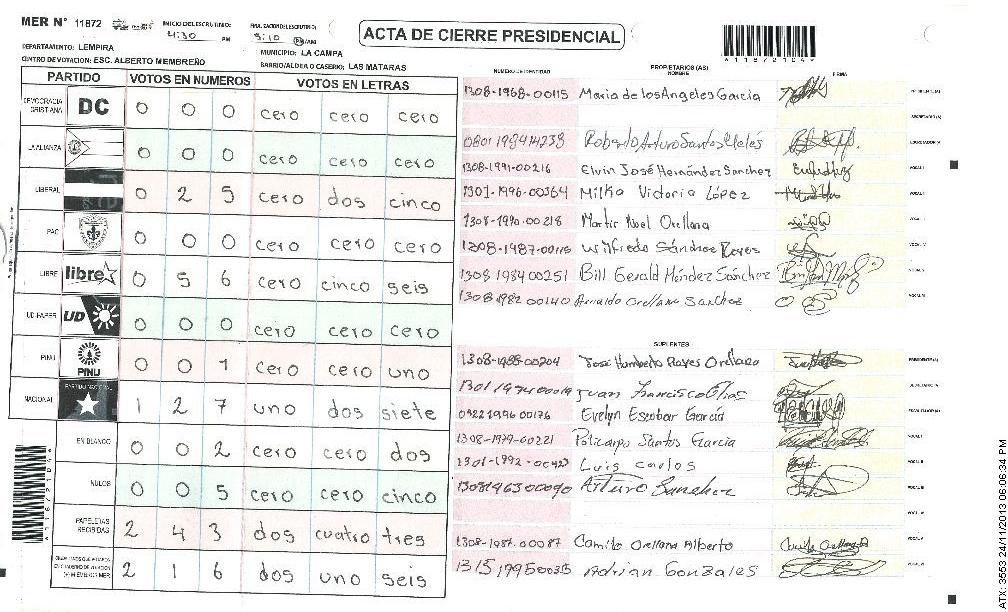 MER N° 11872
INICIO DEL ESCRUTINIO: 4:30 PM
ACTA DE CIERRE PRESIDENCIAL
*11872104*
DEPARTAMENTO: LEMPIRA
MUNICIPIO: LA CAMPA
CENTRO DE VOTACION: ESC. ALBERTO MEMBREÑO
BARRIO/ALDEA O CASERIO: LAS MATARAS
PARTIDO VOTOS EN NUMEROS VOTOS EN LETRAS
DEMOCRACIA CRISTIANA DC 0 0 0 cero cero cero
LA ALIANZA 0 0 0 cero cero cero
LIBERAL 0 2 5 cero dos cinco
PAC 0 0 0 cero cero cero
LIBRE libre 0 5 6 cero cinco seis
UD-FAPER UD 0 0 0 cero cero cero
PINU PINU 0 0 1 cero cero uno
NACIONAL PARTIDO NACIONAL 1 2 7 uno dos siete
EN BLANCO 0 0 2 cero cero dos
NULOS 0 0 5 cero cero cinco
PAPELETAS RECIBIDAS 2 4 3 dos cuatro tres
2 1 6 dos uno seis
NUMERO DE IDENTIDAD PROPIETARIOS (AS) NOMBRE FIRMA
1308-1968-00115 Maria de los Angeles Garcia PRESIDENTE(A)
SECRETARIO(A)
0801 1984 14239 Roberto Arturo Santos ESCRUTADOR/A
1308-1991-00216 Elvin José Hernández Sanchez VOCAL I
1301-1996-00364 Milka Victoria López
1308-1990-00218 Martir Noel Orellana
1308-1987-00115 Wilfredo Sánchez Reyes
1308 1984 00251 Bill Gerald Méndez Sánchez
1308 1982 00140 Arnaldo Orellana Sanchez
SUPLENTES
1308-1988-00204 José Humberto Reyes Orellana PRESIDENTE(A)
Juan Francisco Elias
0422 1996 00176 Evelyn Escobar García
1308-1979-00221 Policarpo Santos Garcia
1301-1992-00423 Luis carlos
1308196300090 Arturo Sanchez
1308-1987-00087 Camilo Orellana Alberto
Adrian Gonzales
*11872104*
ATX: 3553 24/11/2013 06:06:34 PM